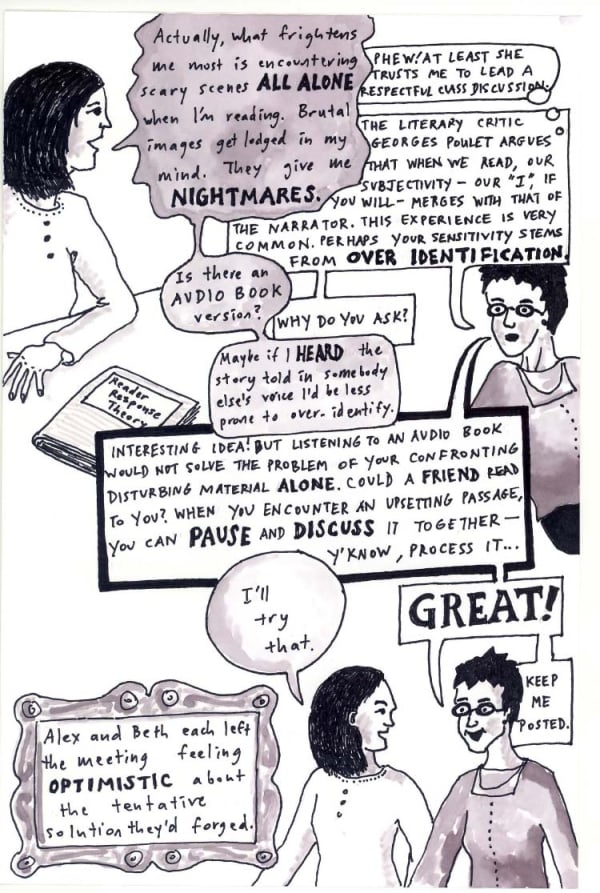 Actually, what frightens
me most is encountering
scary scenes ALL ALONE
when I'm reading. Brutal
images get lodged in my
mind. They give me
NIGHTMARES.
PHEW! AT LEAST SHE
TRUSTS ME TO LEAD A
RESPECTFUL CLASS DISCUSSION.
THE LITERARY CRITIC
GEORGES POULET ARGUES
THAT WHEN WE READ, OUR
SUBJECTIVITY - OUR "I", IF
YOU WILL - MERGES WITH THAT OF
THE NARRATOR. THIS EXPERIENCE IS VERY
COMMON. PERHAPS YOUR SENSITIVITY STEMS
FROM OVER IDENTIFICATION.
Is there an
AUDIO BOOK
version?
WHY DO YOU ASK?
Maybe if I HEARD the
story told in somebody
else's voice I'd be less
prone to over-identify.
Reader
Response
Theory
INTERESTING IDEA! BUT LISTENING TO AN AUDIO BOOK
WOULD NOT SOLVE THE PROBLEM OF YOUR CONFRONTING
DISTURBING MATERIAL ALONE. COULD A FRIEND READ
TO YOU? WHEN YOU ENCOUNTER AN UPSETTING PASSAGE,
YOU CAN PAUSE AND DISCUSS IT TOGETHER -
Y'KNOW, PROCESS IT...
I'll
try
that.
GREAT!
KEEP
ME
POSTED.
Alex and Beth each left
the meeting feeling
OPTIMISTIC about
the tentative
solution they'd forged.